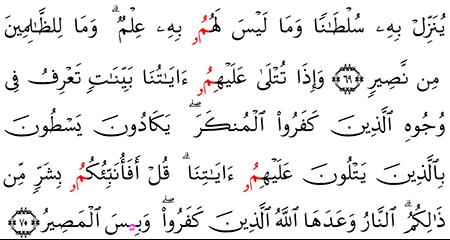 يُنَزِّلْ بِهِۦ سُلْطَٰنًا وَمَا لَيْسَ لَهُمُۥ بِهِۦ عِلْمٌ ۗ وَمَا لِلظَّٰلِمِينَ
مِن نَّصِيرٍ ٦٩ وَإِذَا تُتْلَىٰ عَلَيْهِمُۥ ءَايَٰتُنَا بَيِّنَٰتٍ تَعْرِفُ فِى
وُجُوهِ ٱلَّذِينَ كَفَرُوا۟ ٱلْمُنكَرَ ۖ يَكَادُونَ يَسْطُونَ
بِٱلَّذِينَ يَتْلُونَ عَلَيْهِمُۥ ءَايَٰتِنَا ۗ قُلْ أَفَأُنَبِّئُكُمُۥ بِشَرٍّ مِّن
ذَٰلِكُمُ ۗ ٱلنَّارُ وَعَدَهَا ٱللَّهُ ٱلَّذِينَ كَفَرُوا۟ ۖ وَبِيسَ ٱلْمَصِيرُ ٧٠